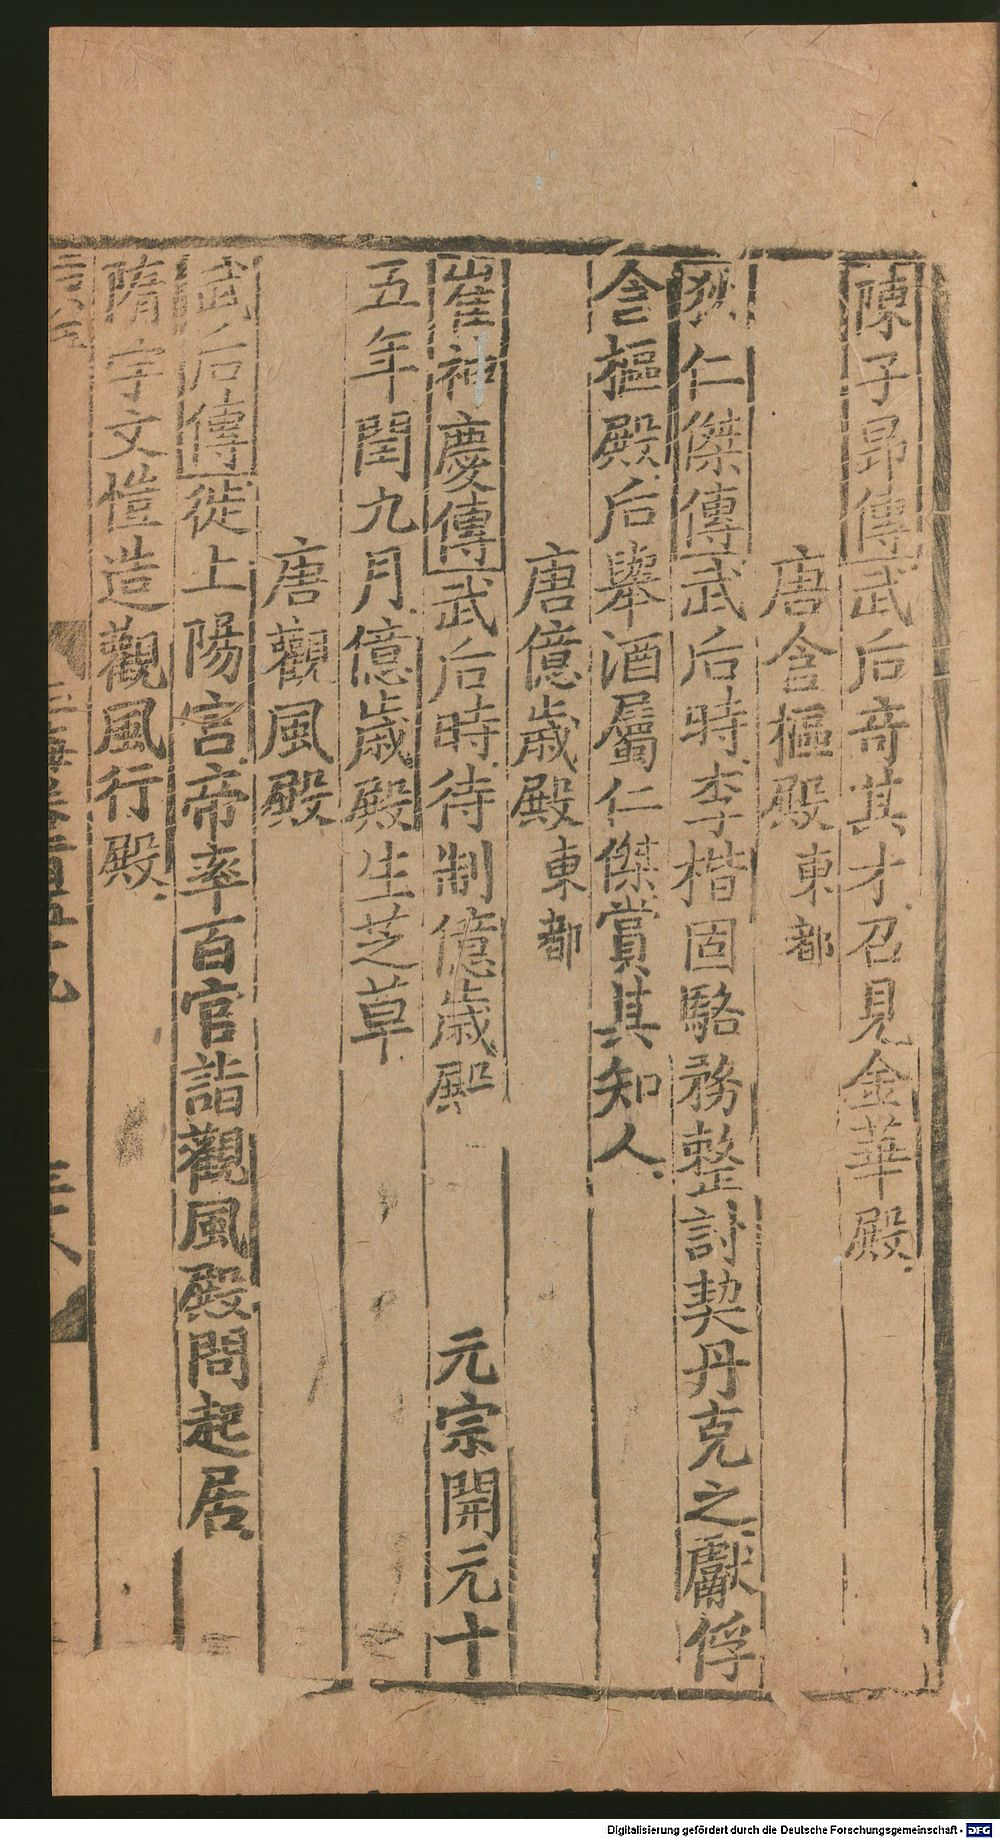 陳子昻傳武后竒其才召見金華殿
唐含樞殿東都
狄仁傑傳武后時李楷固駱務整討契丹克之獻俘
含樞殿后舉酒屬仁傑賞其知人
唐億歲殿東都
崔神慶傳武后時待制億歲殿 元宗開元十
五年閏九月億歲殿生芝草
唐觀風殿
武后傳徙上陽宮帝率百官詣觀風殿問起居
隋宇文愷造觀風行殿
Digitalisierung gefördert durch die Deutsche Forschungsgemeinschaft - DFG